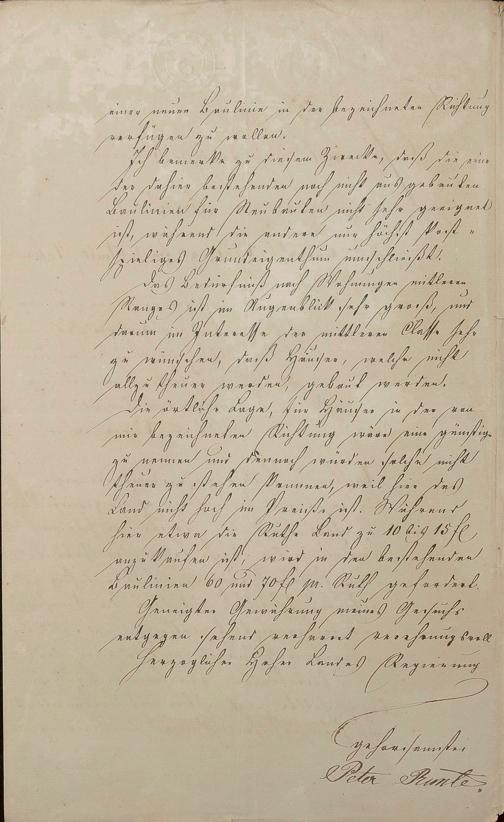 einer neuen Baulinie in der bezeichneten Richtung
verfügen zu wollen.
Ich bemerke zu diesem Zwecke, daß die eine
der dahier bestehenden noch nicht ausgebauten
Baulinien für Neubauten nicht sehr geeignet
ist, während die andere nur höchst kost-
spieliges Grundeigenthum umschließt.
Das Bedürfniß nach Wohnungen mittleren
Ranges ist im Augenblick sehr groß, und
darum im Interesse der mittleren Classe sehr
zu wünschen, daß Häuser, welche nicht
allzu theuer werden, gebaut werden.
Die örtliche Lage, für Häuser in der von
mir bezeichneten Richtung wäre eine günstige
zu nennen und dennoch würden solche nicht
theuer zu stehen kommen, weil hier das
Land nicht hoch im Preise ist. Während
hier etwa die Ruthe Land zu 10 bis 15 fl
anzukaufen ist, wird in den bestehenden
Baulinien 60 und 70 fl pr. Ruth gefordert.
Geneigter Gewährung meines Gesuchs
entgegen sehend verharret verehrungsvoll
Herzoglicher Hoher Landes Regierung
gehorsamster
Peter